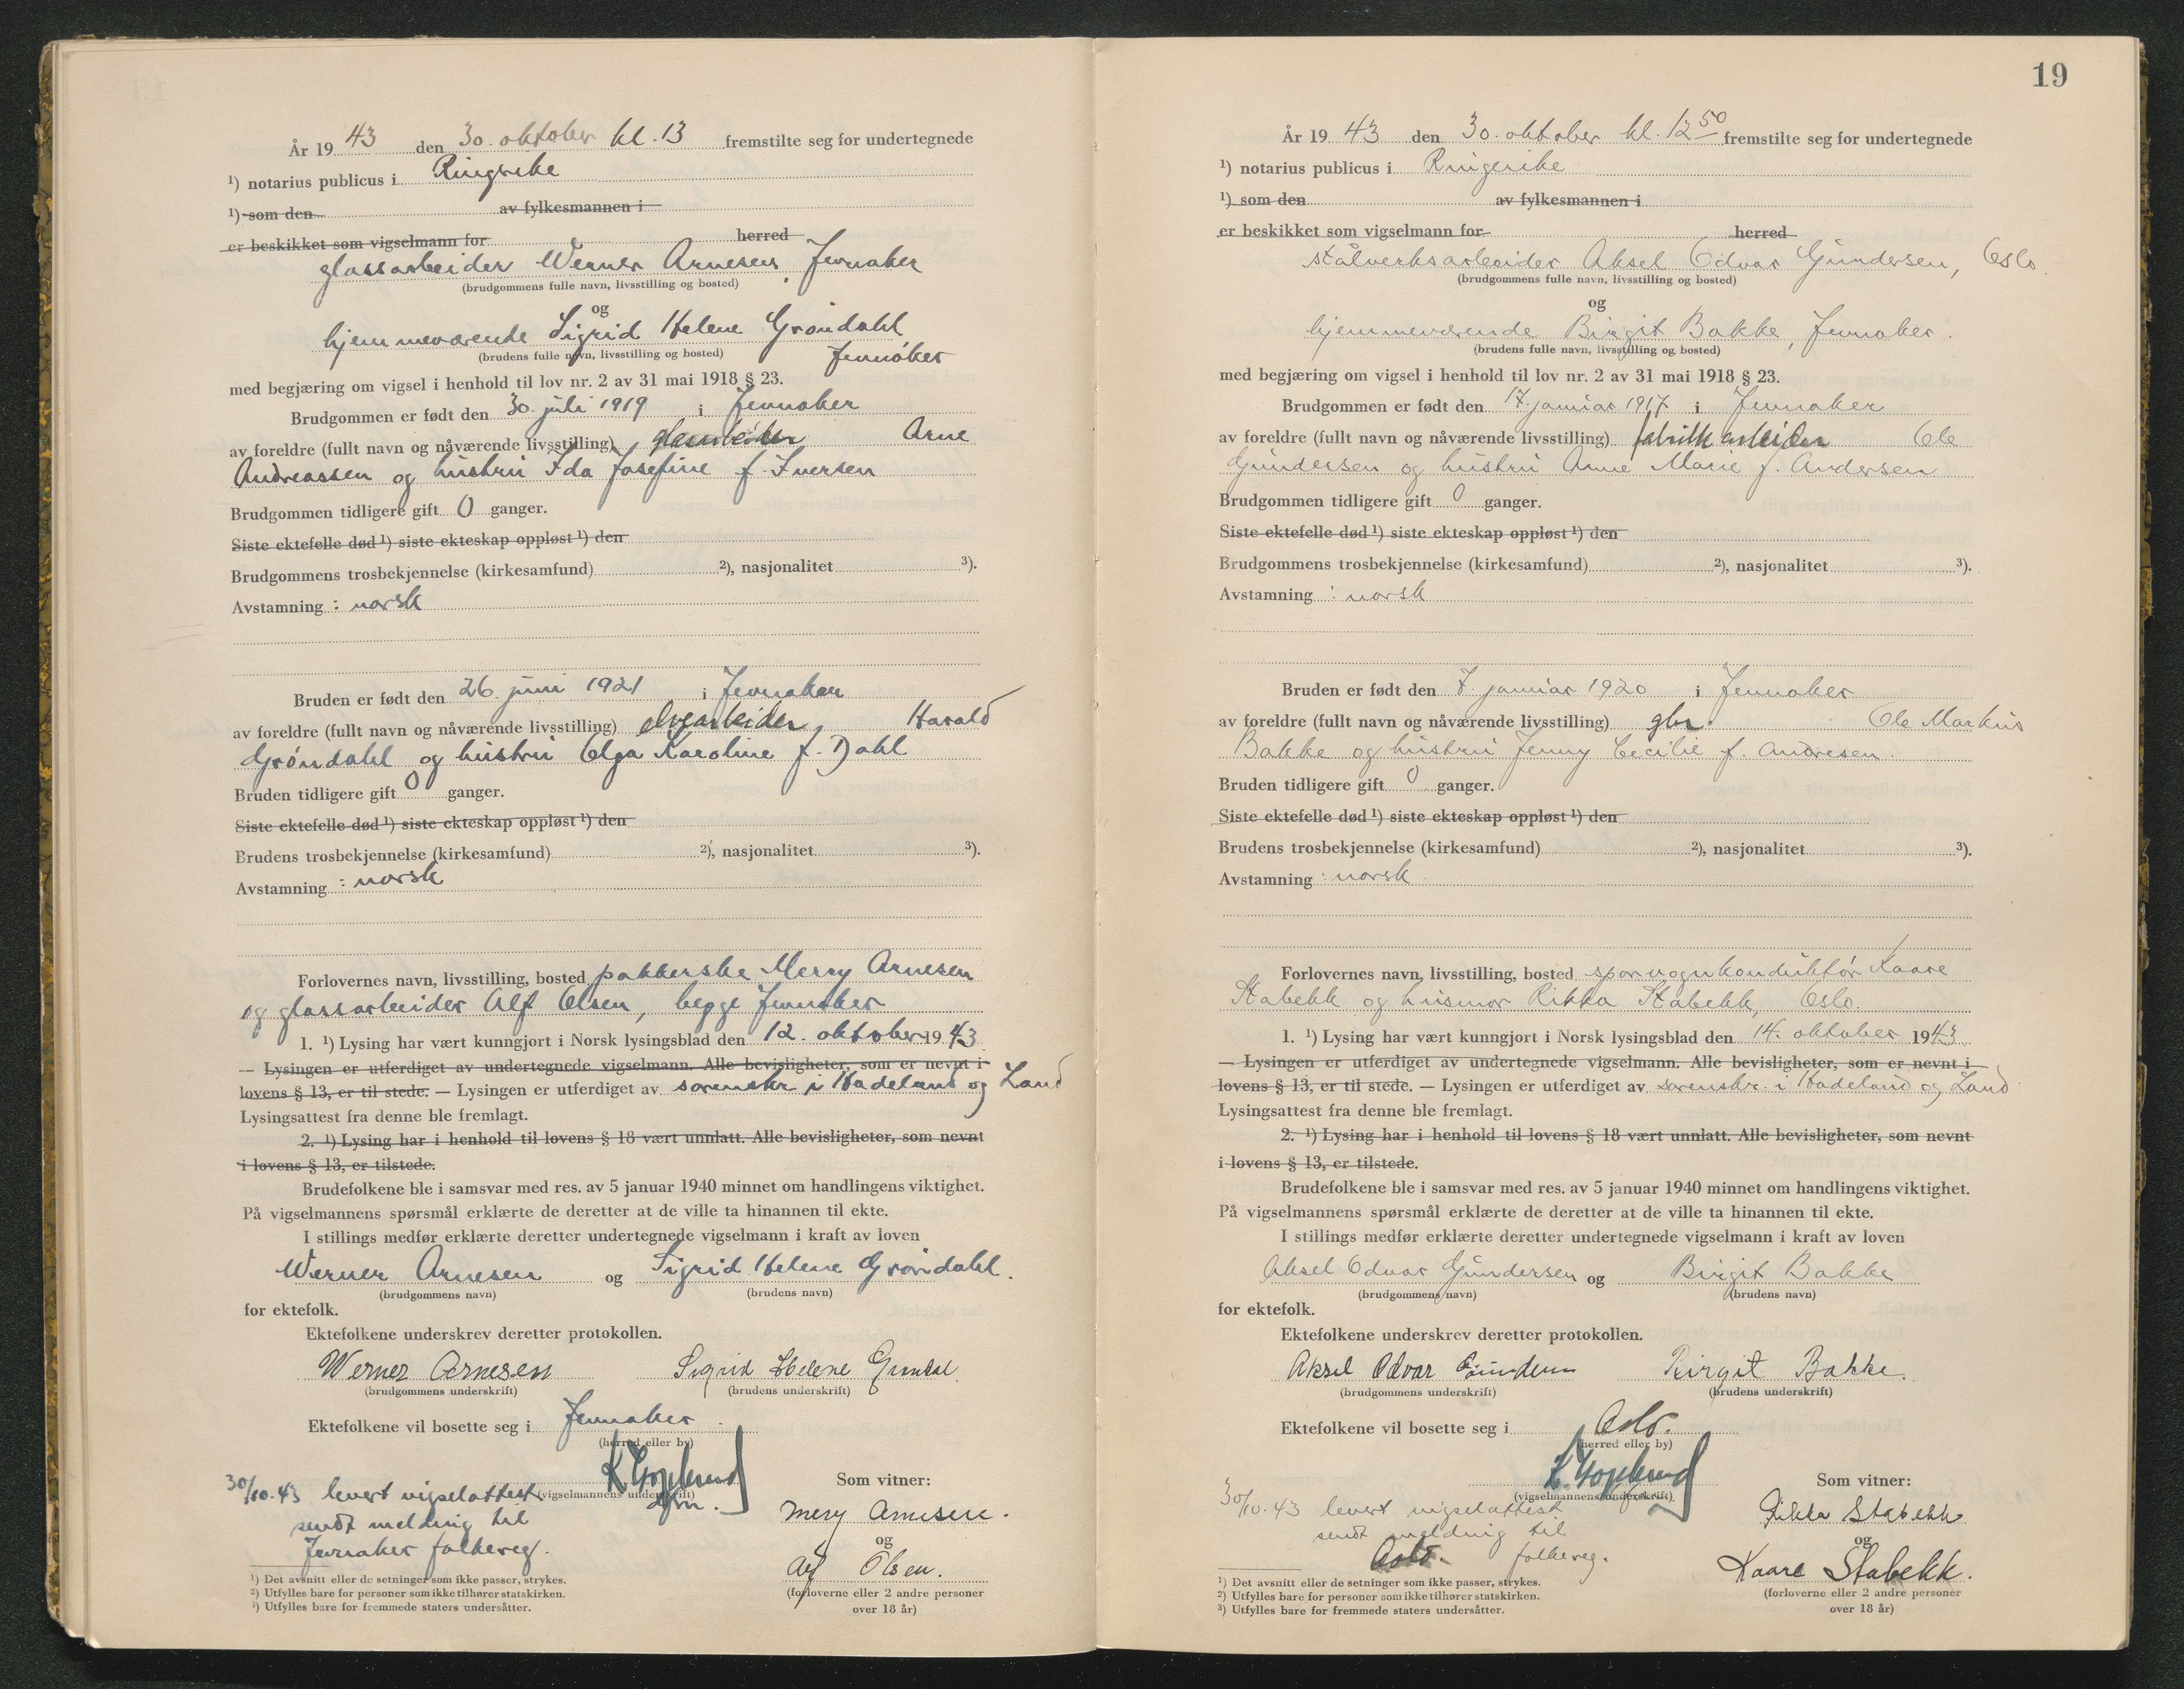 År 19 43 den 30. oktober kl. 13 fremstilte seg for undertegnede
¹) notarius publicus i Ringerike
¹) som den av fylkesmannen i
er beskikket som vigselmann for herred
glassarbeider Werner Arnesen, Jevnaker
(brudgommens fulle navn, livsstilling og bosted)
og
hjemmeværende Sigrid Helene Grøndahl
(brudens fulle navn, livsstilling og bosted) Jevnaker
med begjæring om vigsel i henhold til lov nr. 2 av 31 mai 1918 § 23.
Brudgommen er født den 30. juli 1919 i Jevnaker
av foreldre (fullt navn og nåværende livsstilling) glassarbeider Arne
Andreassen og hustru Ida Josefine f. Iversen
Brudgommen tidligere gift 0 ganger.
Siste ektefelle død ¹) siste ekteskap oppløst ¹) den
Brudgommens trosbekjennelse (kirkesamfund) ²), nasjonalitet ³).
Avstamning : norsk
Bruden er født den 26. juni 1921 i Jevnaker
av foreldre (fullt navn og nåværende livsstilling) elvearbeider Harald
Grøndahl og hustru Olga Karoline f. Dahl
Bruden tidligere gift 0 ganger.
Siste ektefelle død ¹) siste ekteskap oppløst ¹) den
Brudens trosbekjennelse (kirkesamfund) ²), nasjonalitet ³).
Avstamning : norsk
Forlovernes navn, livsstilling, bosted pakkerske Merry Arnesen
og glassarbeider Alf Olsen, begge Jevnaker
1. ¹) Lysing har vært kunngjort i Norsk lysingsblad den 12. oktober 1943
— Lysingen er utferdiget av undertegnede vigselmann. Alle bevisligheter, som er nevnt i
lovens § 13, er til stede. — Lysingen er utferdiget av sorenskr. i Hadeland og Land
Lysingsattest fra denne ble fremlagt.
2. ¹) Lysing har i henhold til lovens § 18 vært unnlatt. Alle bevisligheter, som nevnt
i lovens § 13, er tilstede.
Brudefolkene ble i samsvar med res. av 5 januar 1940 minnet om handlingens viktighet.
På vigselmannens spørsmål erklærte de deretter at de ville ta hinannen til ekte.
I stillings medfør erklærte deretter undertegnede vigselmann i kraft av loven
Werner Arnesen og Sigrid Helene Grøndahl.
(brudgommens navn) (brudens navn)
for ektefolk.
Ektefolkene underskrev deretter protokollen.
Werner Arnesen Sigrid Helene Grøndal
(brudgommens underskrift) (brudens underskrift)
Ektefolkene vil bosette seg i Jevnaker
(herred eller by)
30/10.43 levert vigselattest (vigselmannens underskrift) Som vitner:
sendt melding til Mery Arnesen.
Jevnaker folkereg. og
Alf Olsen.
(forloverne eller 2 andre personer
over 18 år)
¹) Det avsnitt eller de setninger som ikke passer, strykes.
²) Utfylles bare for personer som ikke tilhører statskirken.
³) Utfylles bare for fremmede staters undersåtter.
19
År 19 43 den 30. oktober kl. 12 50 fremstilte seg for undertegnede
¹) notarius publicus i Ringerike
¹) som den av fylkesmannen i
er beskikket som vigselmann for herred
stålverksarbeider Aksel Odvar Gundersen, Oslo.
(brudgommens fulle navn, livsstilling og bosted)
og
hjemmeværende Birgit Bakke, Jevnaker.
(brudens fulle navn, livsstilling og bosted)
med begjæring om vigsel i henhold til lov nr. 2 av 31 mai 1918 § 23.
Brudgommen er født den 17. januar 1917 i Jevnaker
av foreldre (fullt navn og nåværende livsstilling) fabrikkarbeider Ole
Gundersen og hustru Anne Marie f. Andersen
Brudgommen tidligere gift 0 ganger.
Siste ektefelle død ¹) siste ekteskap oppløst ¹) den
Brudgommens trosbekjennelse (kirkesamfund) ²), nasjonalitet ³).
Avstamning : norsk
Bruden er født den 7. januar 1920 i Jevnaker
av foreldre (fullt navn og nåværende livsstilling) gbr. Ole Markus
Bakke og hustru Jenny Cecilie f. Andresen.
Bruden tidligere gift 0 ganger.
Siste ektefelle død ¹) siste ekteskap oppløst ¹) den
Brudens trosbekjennelse (kirkesamfund) ²), nasjonalitet ³).
Avstamning : norsk.
Forlovernes navn, livsstilling, bosted sporvognkonduktør Kaare
Stabekk og husmor Rikka Stabekk, Oslo.
1. ¹) Lysing har vært kunngjort i Norsk lysingsblad den 14. oktober 1943
— Lysingen er utferdiget av undertegnede vigselmann. Alle bevisligheter, som er nevnt i
lovens § 13, er til stede. — Lysingen er utferdiget av sorenskr. i Hadeland og Land
Lysingsattest fra denne ble fremlagt.
2. ¹) Lysing har i henhold til lovens § 18 vært unnlatt. Alle bevisligheter, som nevnt
i lovens § 13, er tilstede.
Brudefolkene ble i samsvar med res. av 5 januar 1940 minnet om handlingens viktighet.
På vigselmannens spørsmål erklærte de deretter at de ville ta hinannen til ekte.
I stillings medfør erklærte deretter undertegnede vigselmann i kraft av loven
Aksel Odvar Gundersen og Birgit Bakke
(brudgommens navn) (brudens navn)
for ektefolk.
Ektefolkene underskrev deretter protokollen.
Aksel Odvar Gundersen Birgit Bakke.
(brudgommens underskrift) (brudens underskrift)
Ektefolkene vil bosette seg i Oslo.
(herred eller by)
30/10.43 levert vigselattest (vigselmannens underskrift) Som vitner:
sendt melding til Rikka Stabekk
Oslo. folkereg. og
Kaare Stabekk.
(forloverne eller 2 andre personer
over 18 år)
¹) Det avsnitt eller de setninger som ikke passer, strykes.
²) Utfylles bare for personer som ikke tilhører statskirken.
³) Utfylles bare for fremmede staters undersåtter.